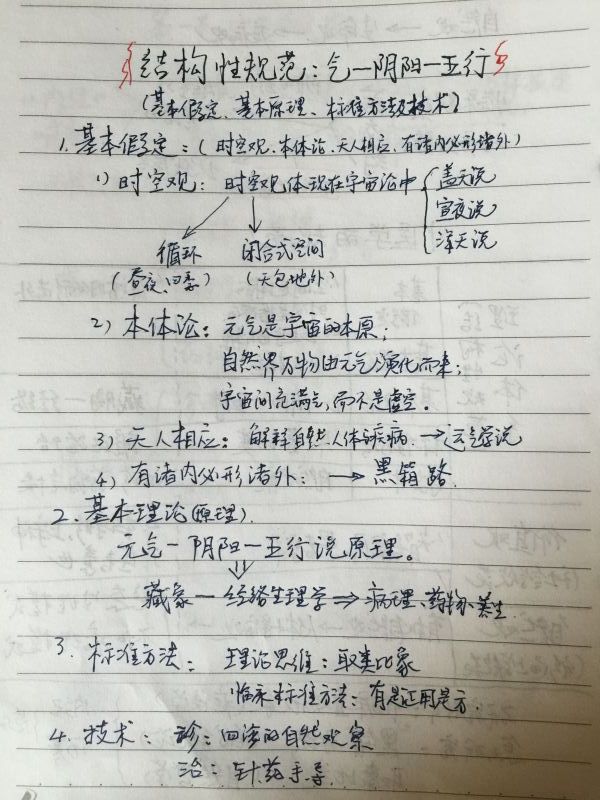 结构性规范：气一阴阳一五行
（基本假定、基本原理、标准方法及技术）
1. 基本假定：（时空观、本体论、天人相应、有诸内必形诸外）
1) 时空观：时空观体现在宇宙论中 盖天说
宣夜说
浑天说
循环 闭合式空间
（昼夜、四季） （天包地外）
2) 本体论：元气是宇宙的本原；
自然界万物由元气演化而来；
宇宙间充满气，而不是虚空。
3) 天人相应：解释自然、人体、疾病 → 运气学说
4) 有诸内必形诸外： → 黑箱路
2. 基本理论（原理）
元气一阴阳一五行说原理。
藏象一经络生理学 ⇒ 病理、药物、养生
3. 标准方法： 理论思维：取类比象
临床标准方法：有是证用是方.
4. 技术： 诊：四诊的自然观察
治：针药手导